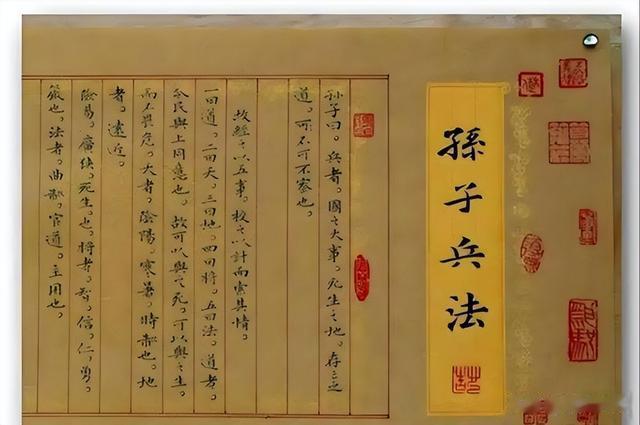 孫子兵法
孙子曰。兵者。國之大事。死生之地。存亡之
道。可不可不察也。
故經之以五事。校之以計而索其情。
一曰道。二曰天。三曰地。四曰將。五曰法。道者。
令民與上同意也。故可以與之死。可以與之生。
而不畏危。大者。陰陽。寒暑。時制也。地
者。遠近。
險易。廣狹。死生。也。將者。智。信。仁。勇。
嚴也。法者。曲制。官道。主用也。